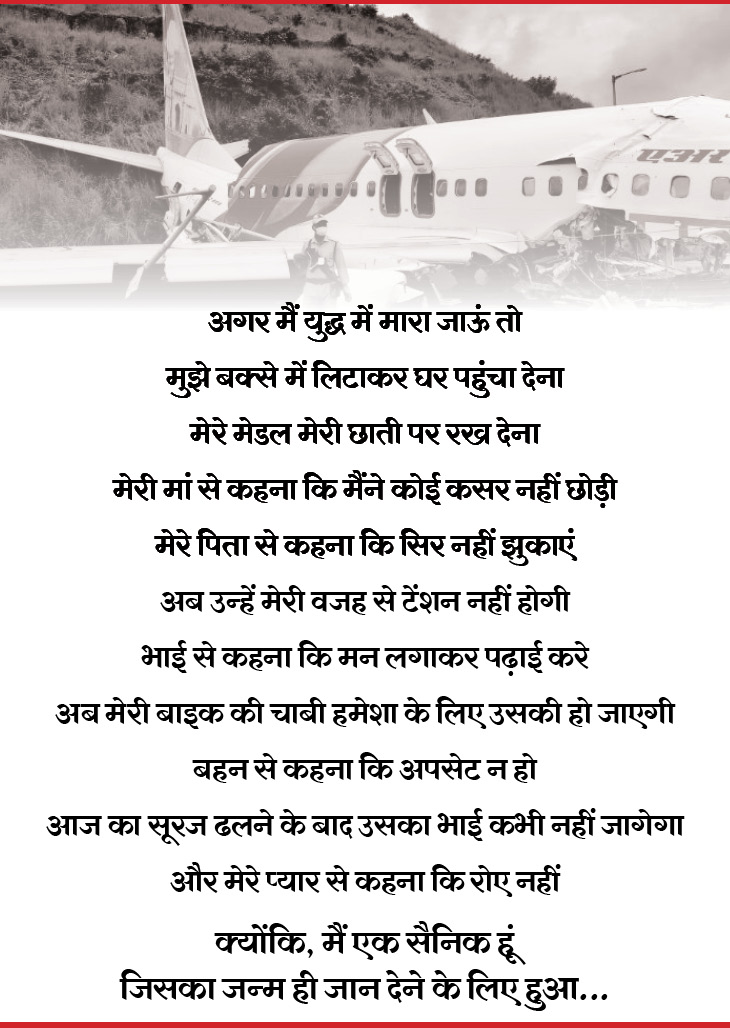 एअर
अगर मैं युद्ध में मारा जाऊं तो
मुझे बक्से में लिटाकर घर पहुंचा देना
मेरे मेडल मेरी छाती पर रख देना
मेरी मां से कहना कि मैंने कोई कसर नहीं छोड़ी
मेरे पिता से कहना कि सिर नहीं झुकाएं
अब उन्हें मेरी वजह से टेंशन नहीं होगी
भाई से कहना कि मन लगाकर पढ़ाई करे
अब मेरी बाइक की चाबी हमेशा के लिए उसकी हो जाएगी
बहन से कहना कि अपसेट न हो
आज का सूरज ढलने के बाद उसका भाई कभी नहीं जागेगा
और मेरे प्यार से कहना कि रोए नहीं
क्योंकि, मैं एक सैनिक हूं
जिसका जन्म ही जान देने के लिए हुआ...